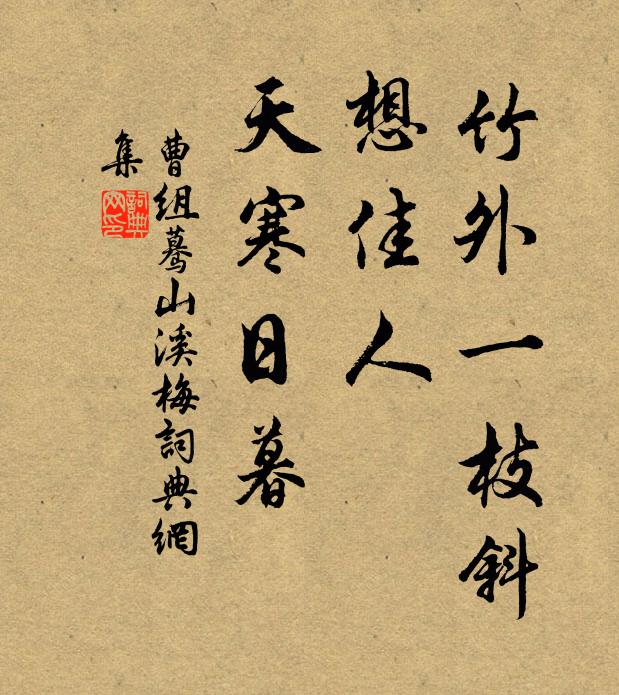 竹外一枝斜
想佳人
天寒日暮
曹組驀山溪梅詞典網
集
詞典
网印